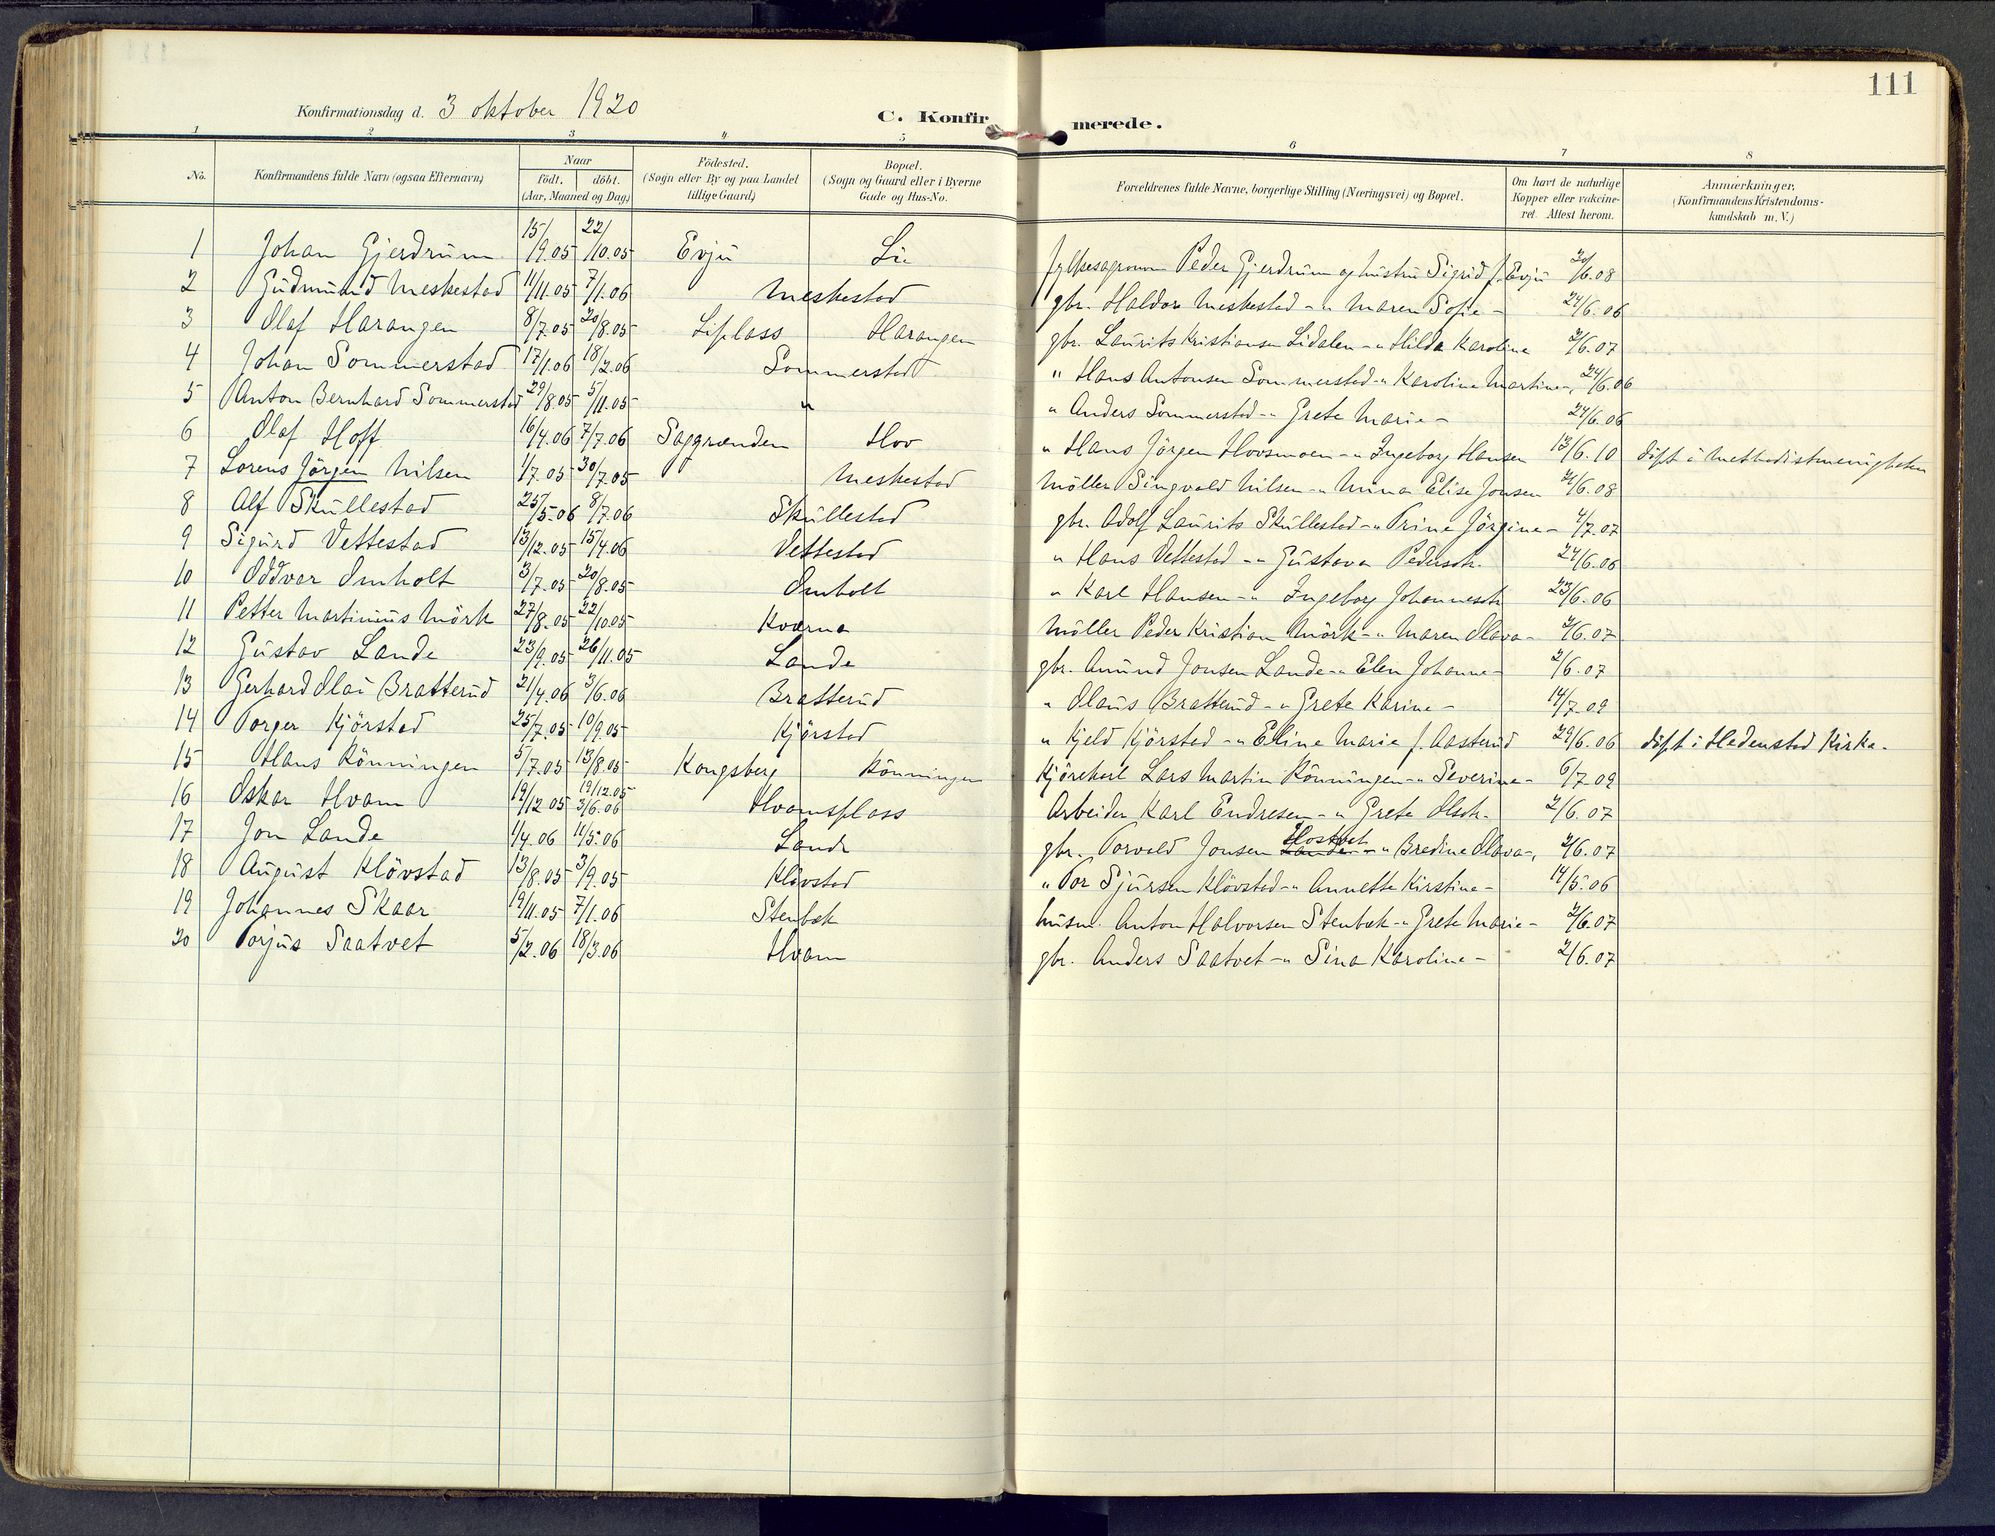 111
Konfirmationsdag d. 3 oktober 1920 C. Konfirmerede.
1 2 3 4 5 6 7 8
No. Konfirmandens fulde Navn (ogsaa Efternavn) Naar födt. döbt. (Aar, Maaned og Dag) Födested. (Sogn eller By og paa Landet tillige Gaard) Bopæl. (Sogn og Gaard eller i Byerne Gade og Hus-No. Forældrenes fulde Navne, borgerlige Stilling (Næringsvei) og Bopæl. Om havt de naturlige Kopper eller vakcineret. Attest herom. Anmærkninger. (Konfirmandens Kristendomskundskab m. V.)
1 Johan Gjerdrum 15/9.05 22/10.05 Evju Lie fylkesagronom Peder Gjerdrum og hustru Sigrid f. Evju 20/6.08
2 Gudmund Meskestad 11/11.05 7/1.06 Meskestad gbr. Haldor Meskestad -"- Maren Sofie - 24/6.06
3 Olaf Harangen 8/7.05 20/8.05 Liplass Harangen gbr. Laurits Kristiansen Lidalen -"- Hilda Karoline 2/6.07
4 Johan Sommerstad 17/1.06 18/2.06 Sommerstad " Hans Antonsen Sommerstad -"- Karoline Martine -, 24/6.06
5 Anton Bernhard Sommerstad 29/8.05 5/11.05 " " Anders Sommerstad -"- Grete Marie - 24/6.06
6 Olaf Hoff 16/4.06 7/7.06 Saggrenden Hov " Hans Jörgen Hovsmoen -"- Ingeborg Hansen 13/6.10 döpt i Methodistmenigheten
7 Lorens Jörgen Nilsen 1/7.05 30/7.05 Meskestad Möller Singvald Nilsen -"- Mina Elise Jonsen 21/6.08
8 Alf Skullestad 25/5.06 8/7.06 Skullestad gbr. Adolf Laurits Skullestad -"- Trine Jörgine - 4/7.07
9 Sigurd Vettestad 13/12.05 15/4.06 Vettestad " Hans Vettestad -"- Gustava Pedersdtr. 24/6.06
10 Oddvar Omholt 3/7.05 20/8.05 Omholt " Karl Hansen -"- Ingeborg Johannesdtr 23/6.06
11 Petter Martinius Mörk 27/8.05 22/10.05 Kværna Möller Peder Kristian Mörk -"- Maren Olava - 2/6.07
12 Gustav Lande 23/9.05 26/11.05 Lande gbr. Amund Jonsen Lande -"- Elen Johanne - 2/6.07
13 Gerhard Olai Bratterud 21/4.06 3/6.06 Bratterud " Olaus Bratterud -"- Grete Karine - 14/7.09
14 Torger Kjörstad 25/7.05 10/9.05 Kjörstad " Kjeld Kjörstad -"- Eline Marie f. Aasterud 29/6.06 döpt i Hedenstad Kirke.
15 Hans Rönningen 5/7.05 13/8.05 Kongsberg Rönningen Kjörekarl Lars Martin Rönningen -"- Severine - 6/7.09
16 Oskar Hvam 19/12.05 19/12.05 3/6.06 Hvamsplass Arbeider Karl Endresen -"- Grete Olsdtr. 2/6.07
17 Jon Lande 1/4.06 11/5.06 Lande gbr. Torvald Jonsen Lande Hostvet -"- Bredine Olava -, 2/6.07
18 August Klövstad 13/8.05 3/9.05 Klövstad " Tor Sjursen Klövstad -"- Annette Kirstine - 14/5.06
19 Johannes Skaar 19/11.05 7/1.06 Stenbæk husm. Anton Halvorsen Stenbæk -"- Grete Marie - 2/6.07
20 Torjus Saatvet 5/2.06 18/3.06 Hvam gbr. Anders Saatvet -"- Sina Karoline - 2/6.07